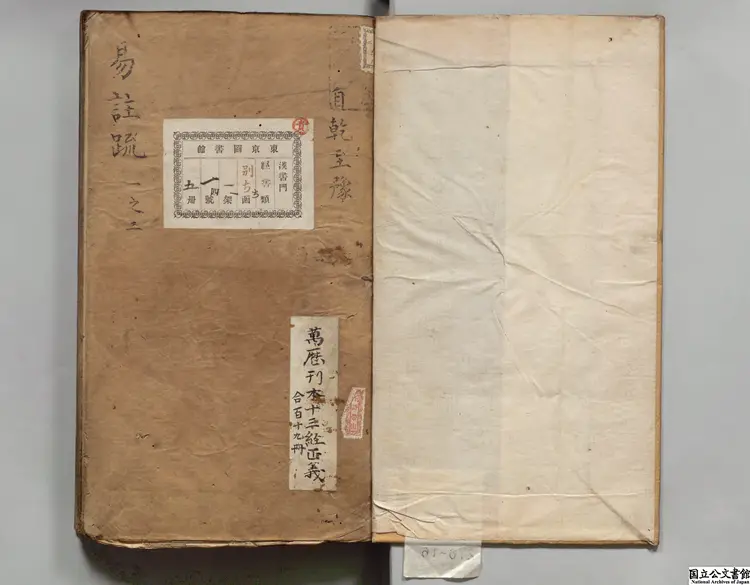 易註疏 一之三
自乾至豫
東京圖書館
漢書門
經書類
別
函
架
一四號
五冊
萬歷刊本十三經正義
合百十九冊
国立公文書館
National Archives of Japan